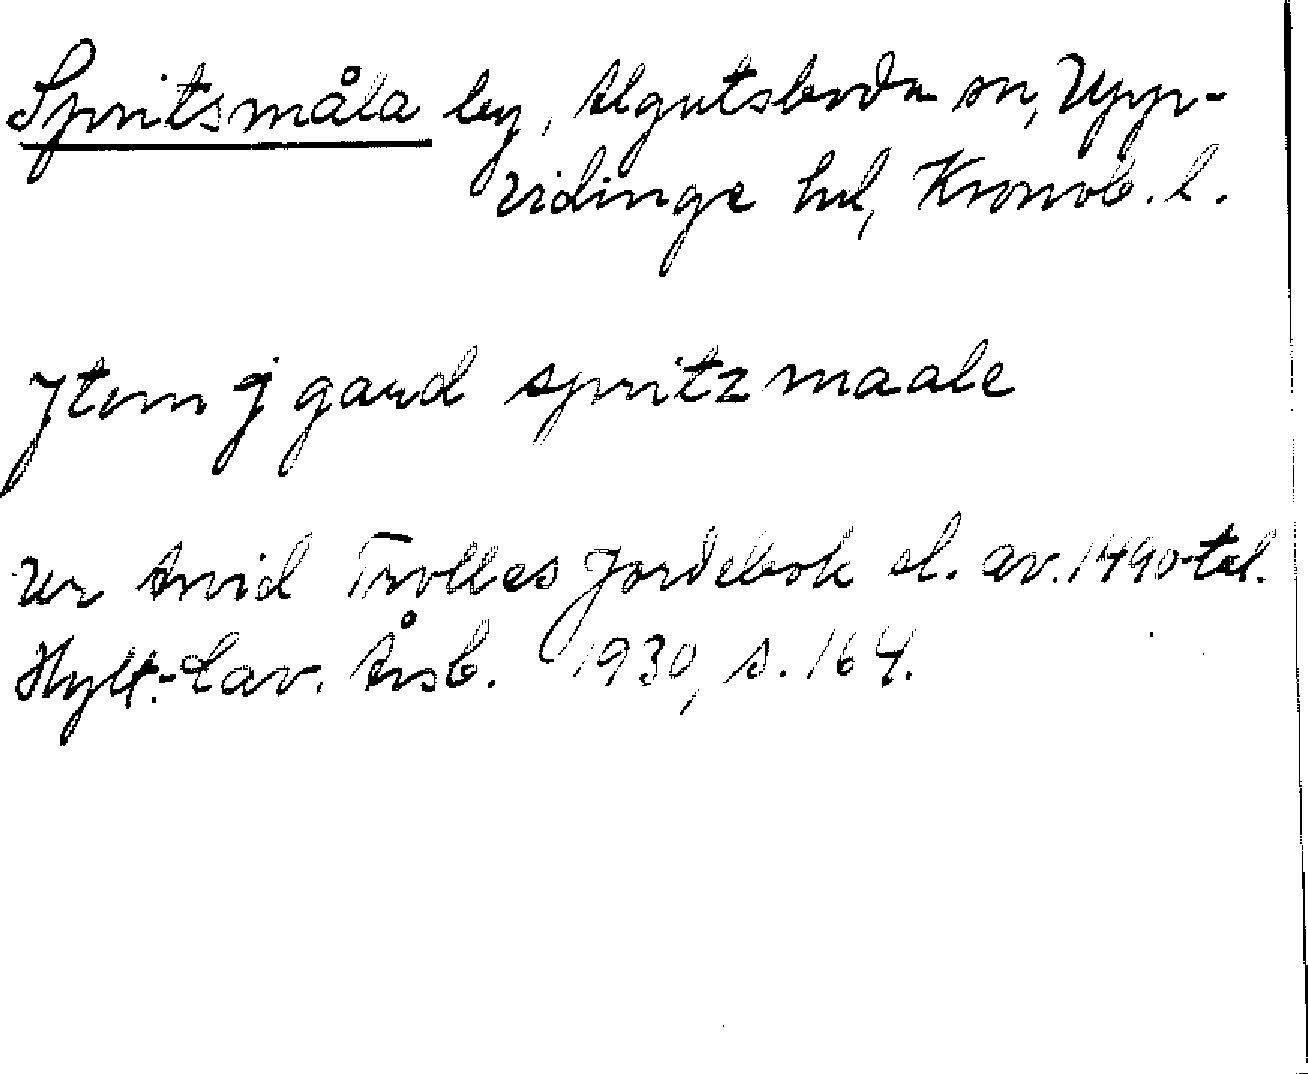 Spritsmåla by, Algutsboda sn, Upp-
vidinge hd, Kronob. l.
Jtem j gard spritzmaale
Ur Arvid Trolles Jordebok sl. av. 1490-tal.
Hylt.-Cav. Årsb. 1930, s. 164.